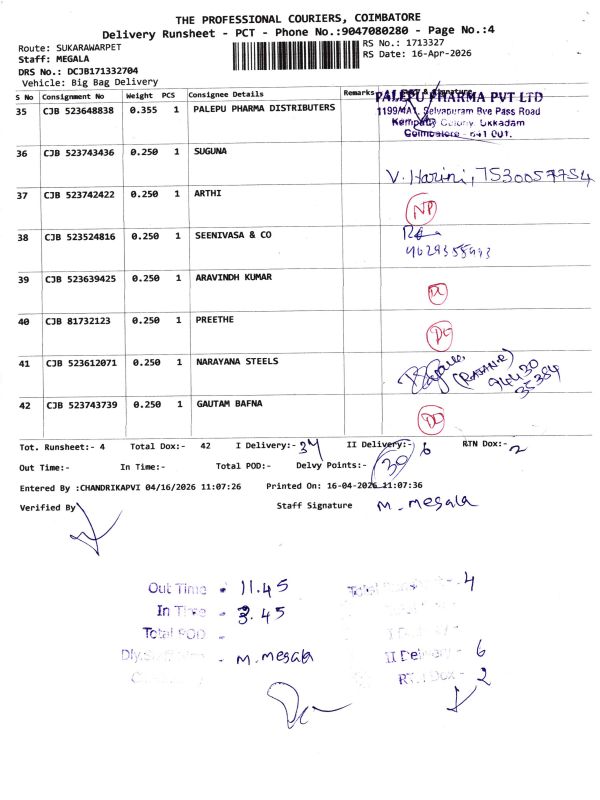 THE PROFESSIONAL COURIERS, COIMBATORE
Delivery Runsheet - PCT - Phone No.:9047080280 - Page No.:4
Route: SUKARAWARPET
RS No.: 1713327
Staff: MEGALA
RS Date: 16-Apr-2026
DRS No.: DCJB171332704
Vehicle: Big Bag Delivery
S No Consignment No Weight PCS Consignee Details Remarks
35 CJB 523648838 0.355 1 PALEPU PHARMA DISTRIBUTERS
PALEPU PHARMA PVT LTD
1199/MA1, Selvapuram Bye Pass Road
Kempatty Colony, Ukkadam
Coimbatore - 641 001.
36 CJB 523743436 0.250 1 SUGUNA
V. Harini, 7530057754
37 CJB 523742422 0.250 1 ARTHI
NP
38 CJB 523524816 0.250 1 SEENIVASA & CO
39 CJB 523639425 0.250 1 ARAVINDH KUMAR
DL
40 CJB 81732123 0.250 1 PREETHE
DC
41 CJB 523612071 0.250 1 NARAYANA STEELS
94430
35384
42 CJB 523743739 0.250 1 GAUTAM BAFNA
Tot. Runsheet:- 4 Total Dox:- 42 I Delivery:- 34 II Delivery:- 6 RTN Dox:- 2
Out Time:- In Time:- Total POD:- Delvy Points:- 39
Entered By :CHANDRIKAPVI 04/16/2026 11:07:26 Printed On: 16-04-2026 11:07:36
Verified By Staff Signature M. Megala
Out Time - 11.45
4
In Time - 3.45
Total POD -
M. Megala
II Delivery - 6
2